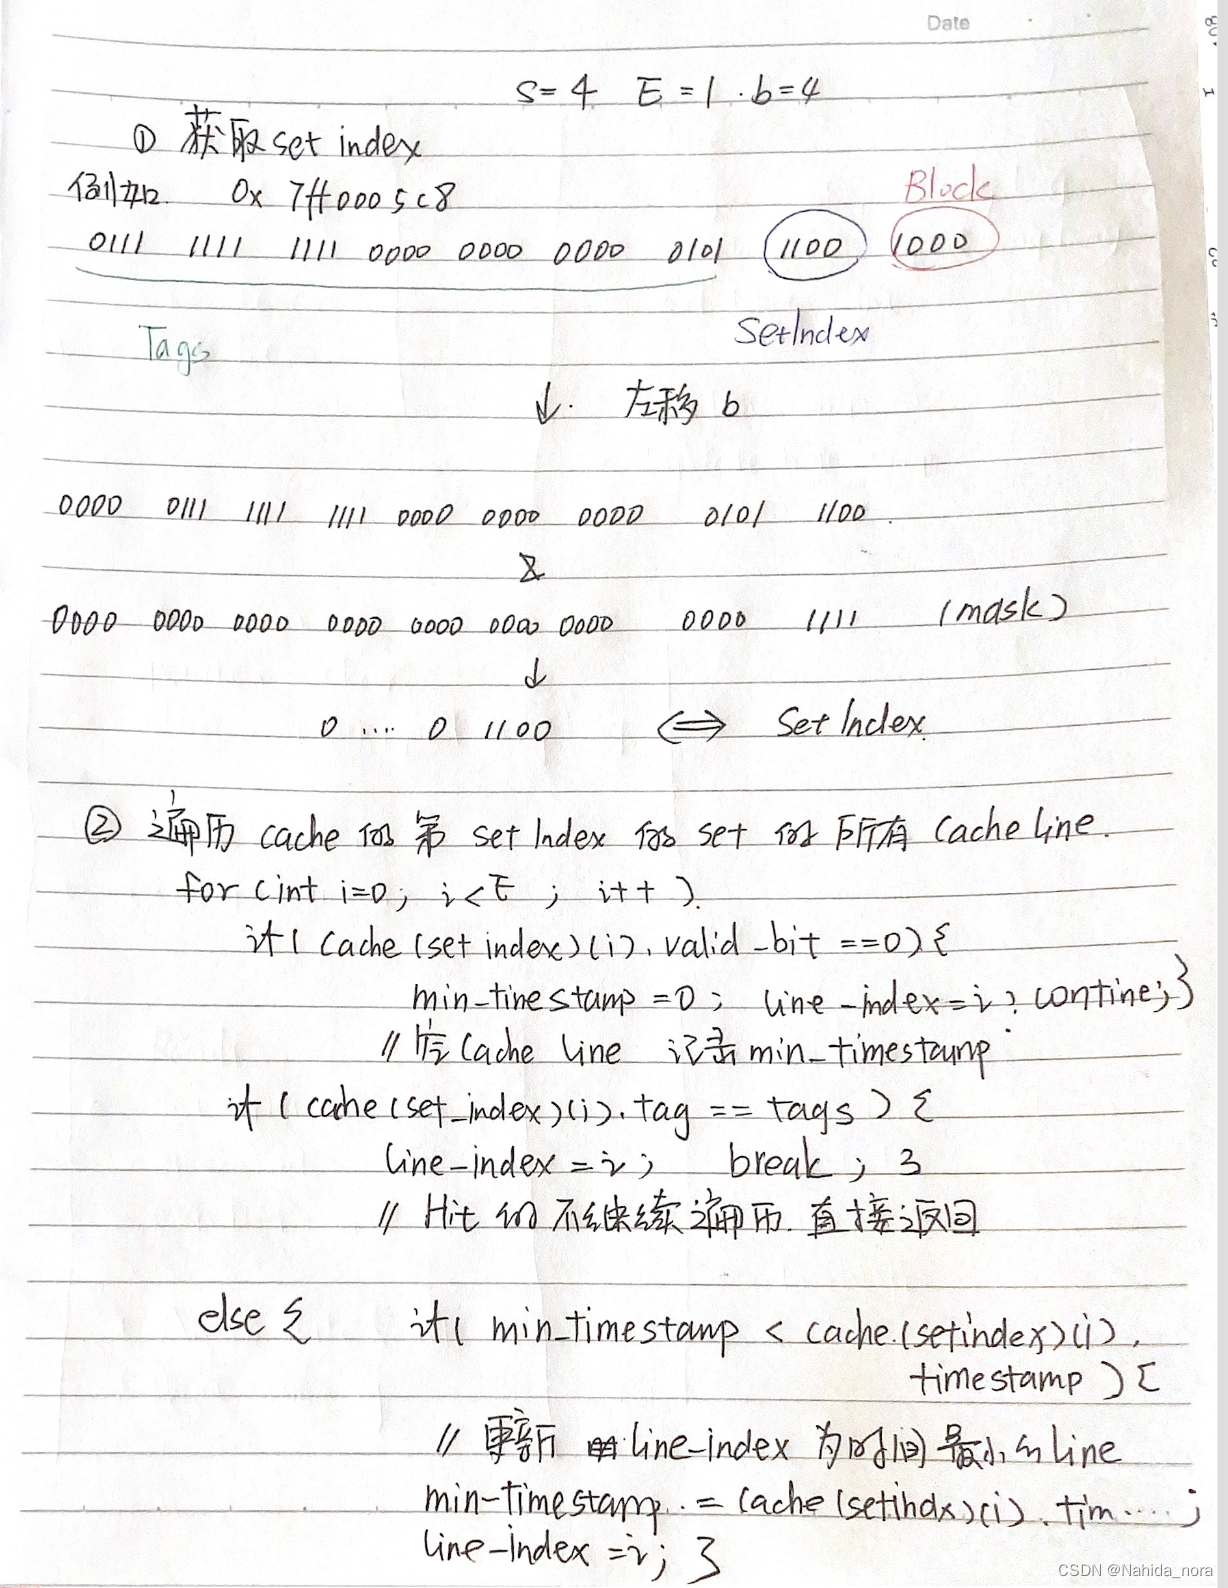 Date
S=4 E=1 . b=4
① 获取 set index
例如. 0x 7ff0005c8
Block
0111 1111 1111 0000 0000 0000 0101 1100 1000
Tags
SetIndex
↓. 左移 b
0000 0111 1111 1111 0000 0000 0000 0101 1100 .
&
0000 0000 0000 0000 0000 0000 0000 0000 1111 (mask)
↓
0 .... 0 1100 <=> Set Index.
② 遍历 cache 的 第 set Index 的 set 的 所有 Cache line.
for (int i=0; i<E ; i++ ).
if( Cache (set index)(i). valid_bit ==0) {
min-tinestamp =0 ; line-index=i ; contine; }
// Cache line 记录 min_timestamp
if ( cache (set_index)(i). tag == tags ) {
line-index = i ; break ; }
// Hit 的 不继续遍历. 直接返回
else { if( min_timestamp < cache.(setindex)(i).
timestamp ) {
// 更新 line-index 为时间最小的 line
min-timestamp . = Cache (setindx)(i) . tim..... ;
line-index =i; }
CSDN @Nahida_nora